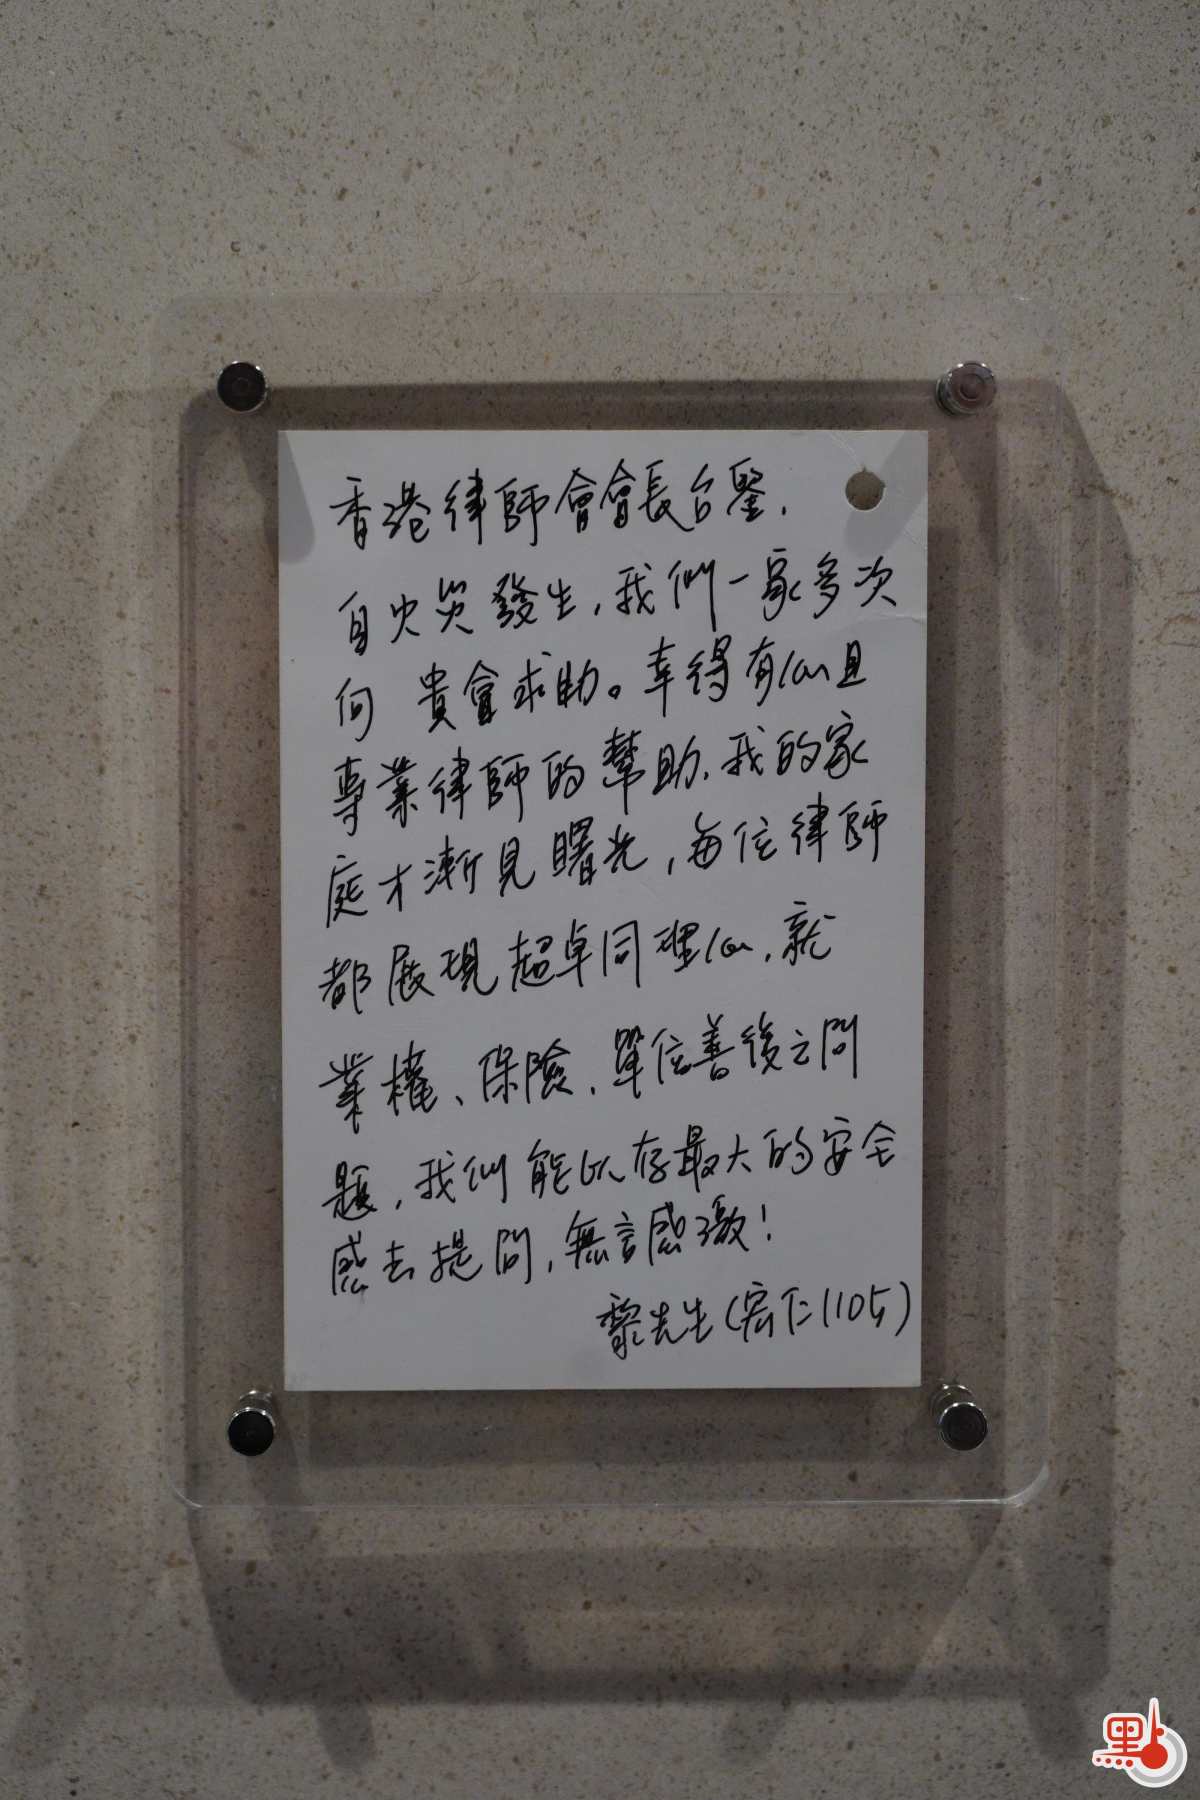 香港律師會會長台鑒，
自火災發生，我們一家多次
向 貴會求助。幸得有心且
專業律師的幫助，我的家
庭才漸見曙光，每位律師
都展現超卓同理心，就
業權、保險、單位善後之問
題，我們能以存最大的安全
感去提問，無言感激！
黎先生（宏仁1105）
點